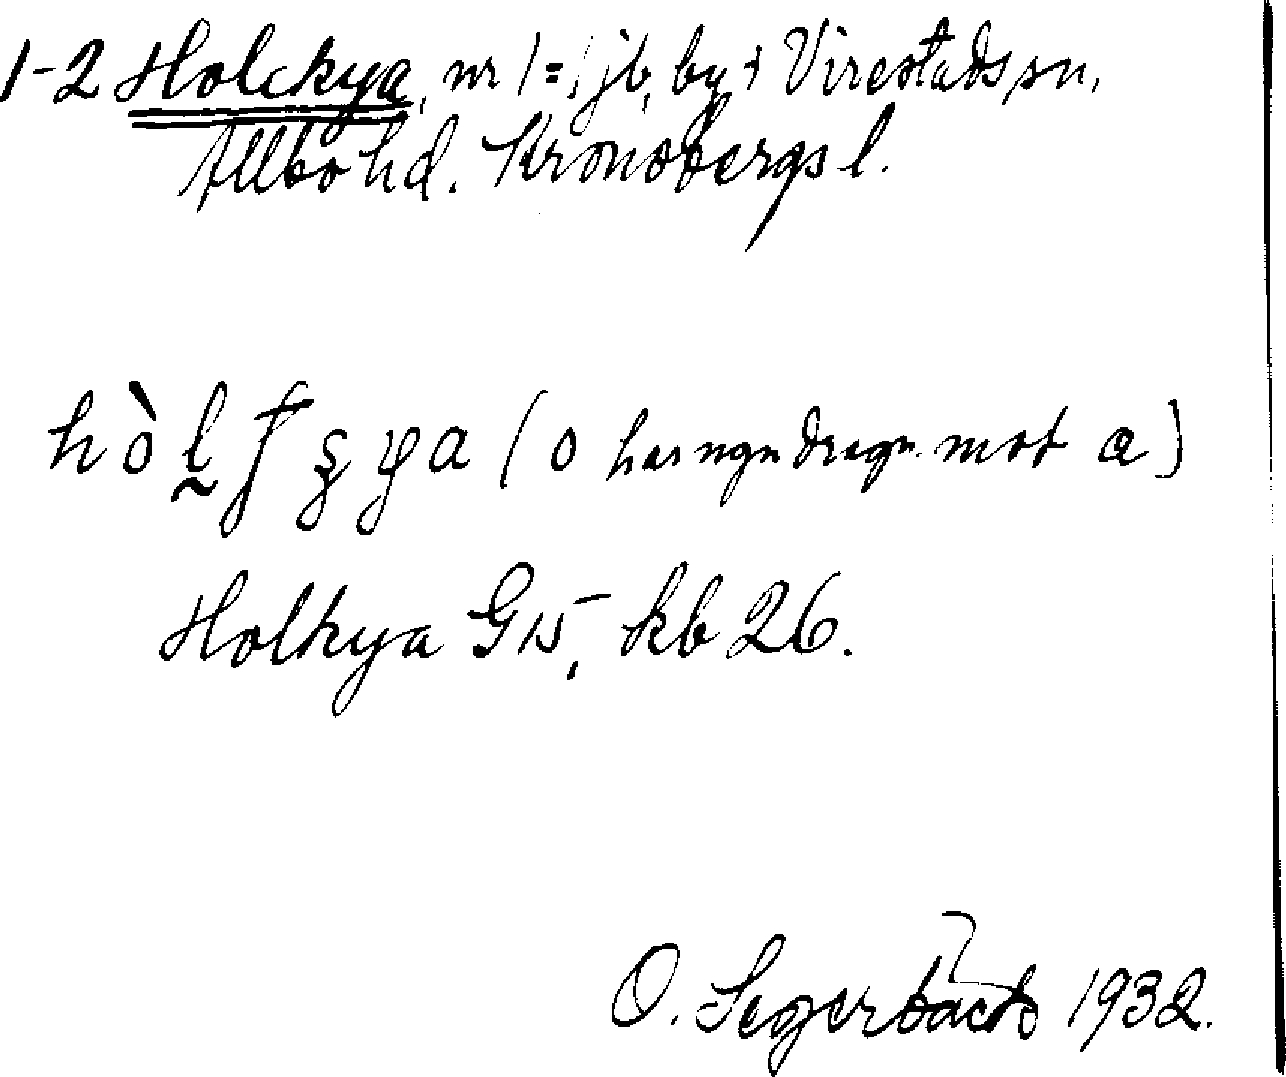 1-2 Holckya, nr 1=, jb, by, Virestads sn,
Allbo hd. Kronobergs l.
hòl̰ʃşya (o har ngn dragn. mot a)
Holkya G15, kb 26.
O. Segerbäck 1932.